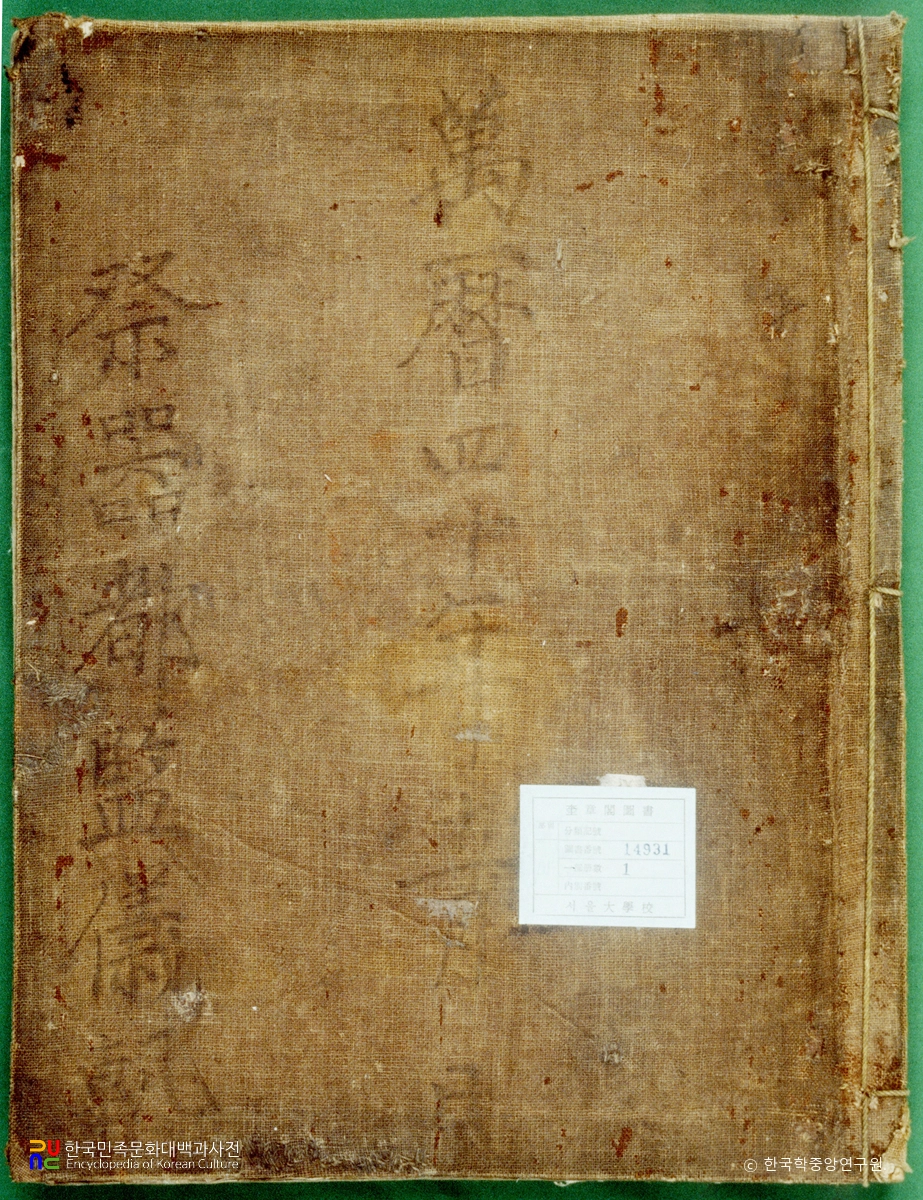 萬曆四十年十
祭器都監儀軌
奎章閣圖書
14931
1
서울大學校
한국민족문화대백과사전
Encyclopedia of Korean Culture
© 한국학중앙연구원